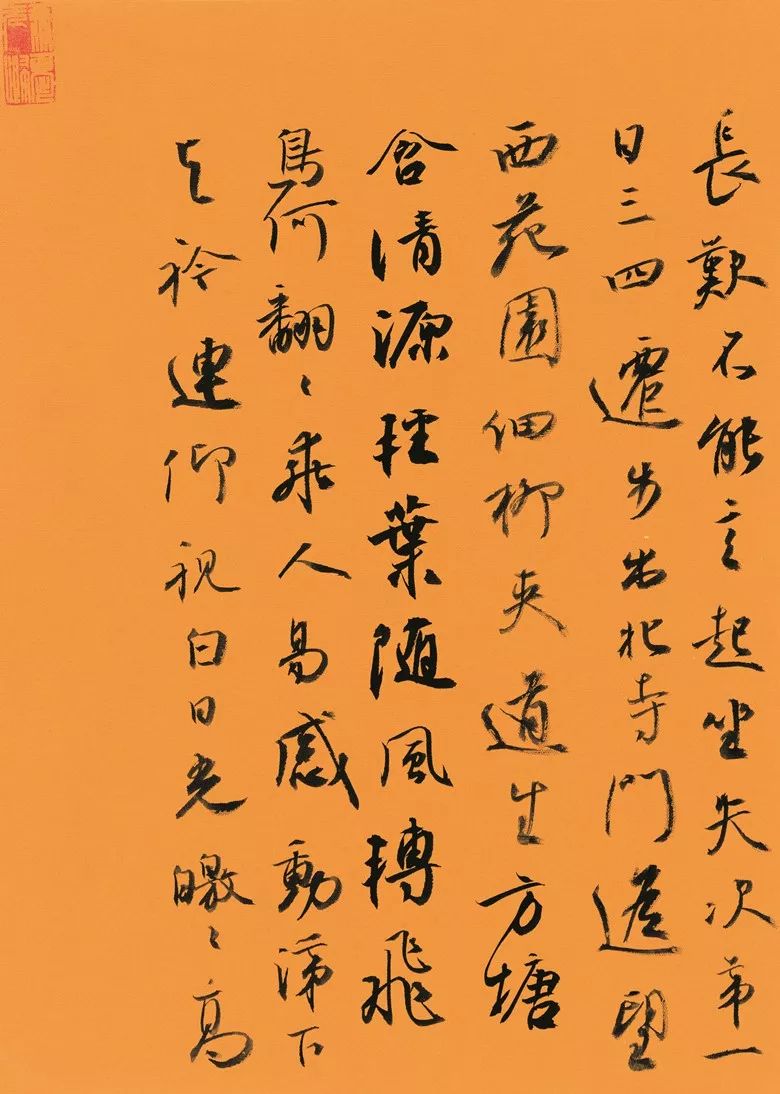 長歎不能言起坐失次第一
日三四遷步出北寺門遥望
西苑園細柳夾道生方塘
含清源輕葉随風轉飛
鳥何翻〻乖人易感動涕下
与衿連仰視白日光皦〻高